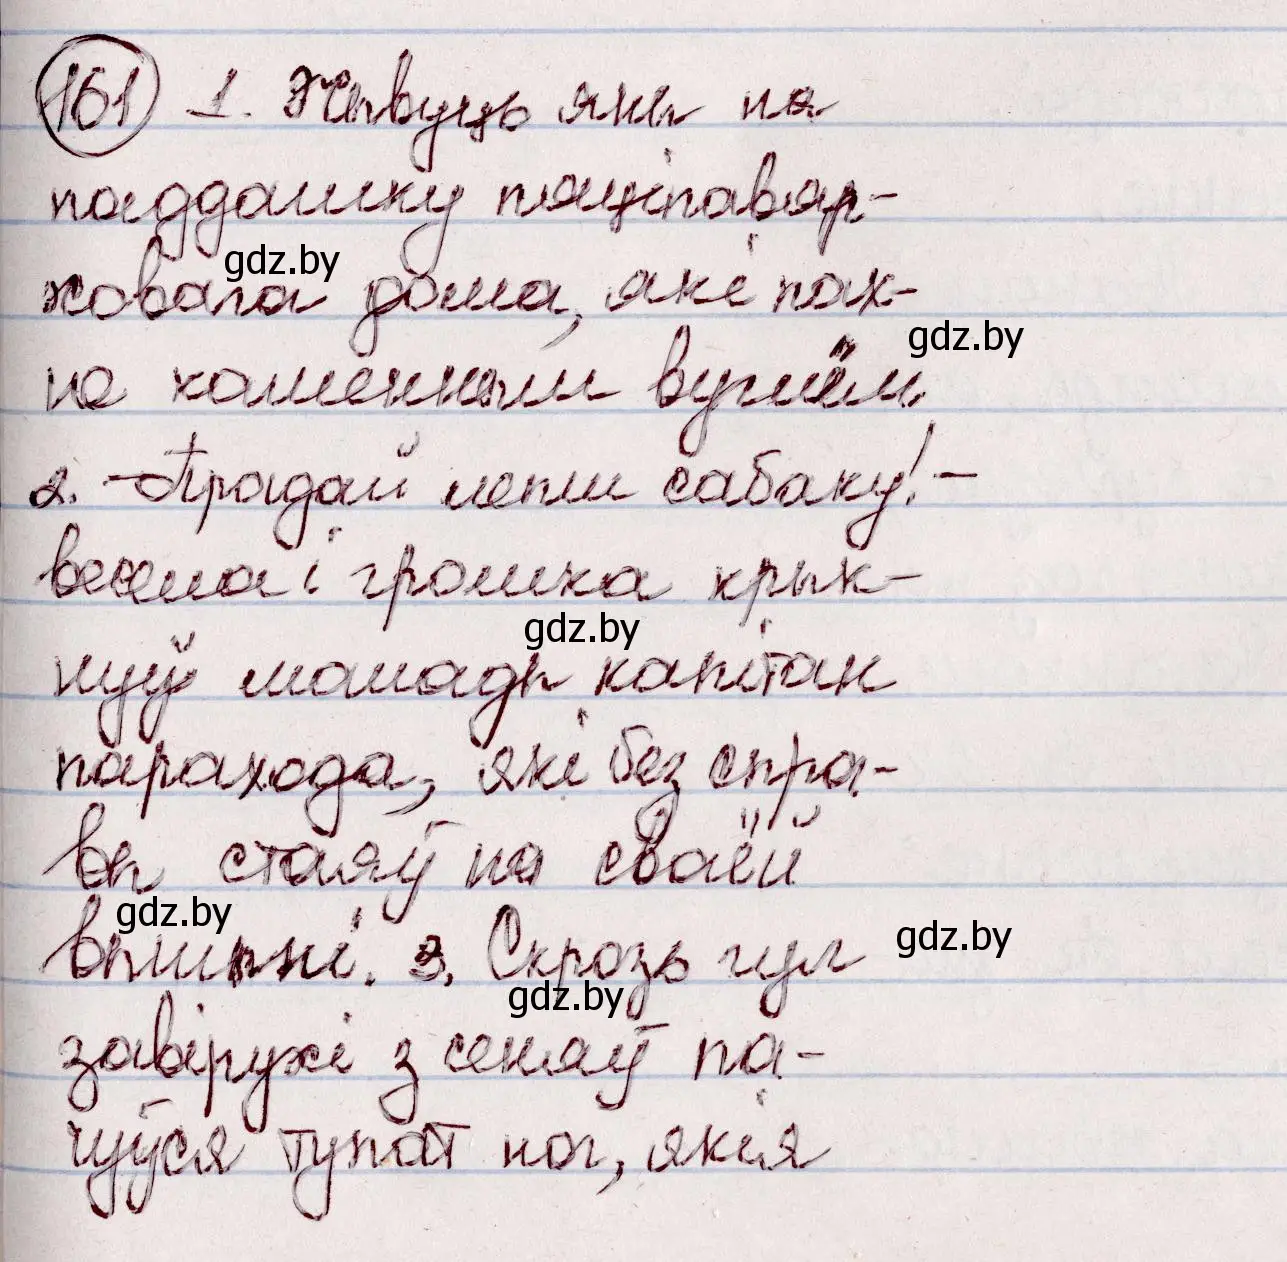 161 1. Жывуць яны на
паддашку пяціпавяр-
ховага дома, які пах-
не каменным вуглём.
2. – Прадай лепш сабаку! –
весела і громка крык-
нуў малады капітан
парахода, які без спра-
вы стаяў на сваёй
вышыні. 3. Скрозь гул
завірухі з сеняў па-
чуўся тупат ног, якія
gdz.by
gdz.by
gdz.by
gdz.by
gdz.by
gdz.by